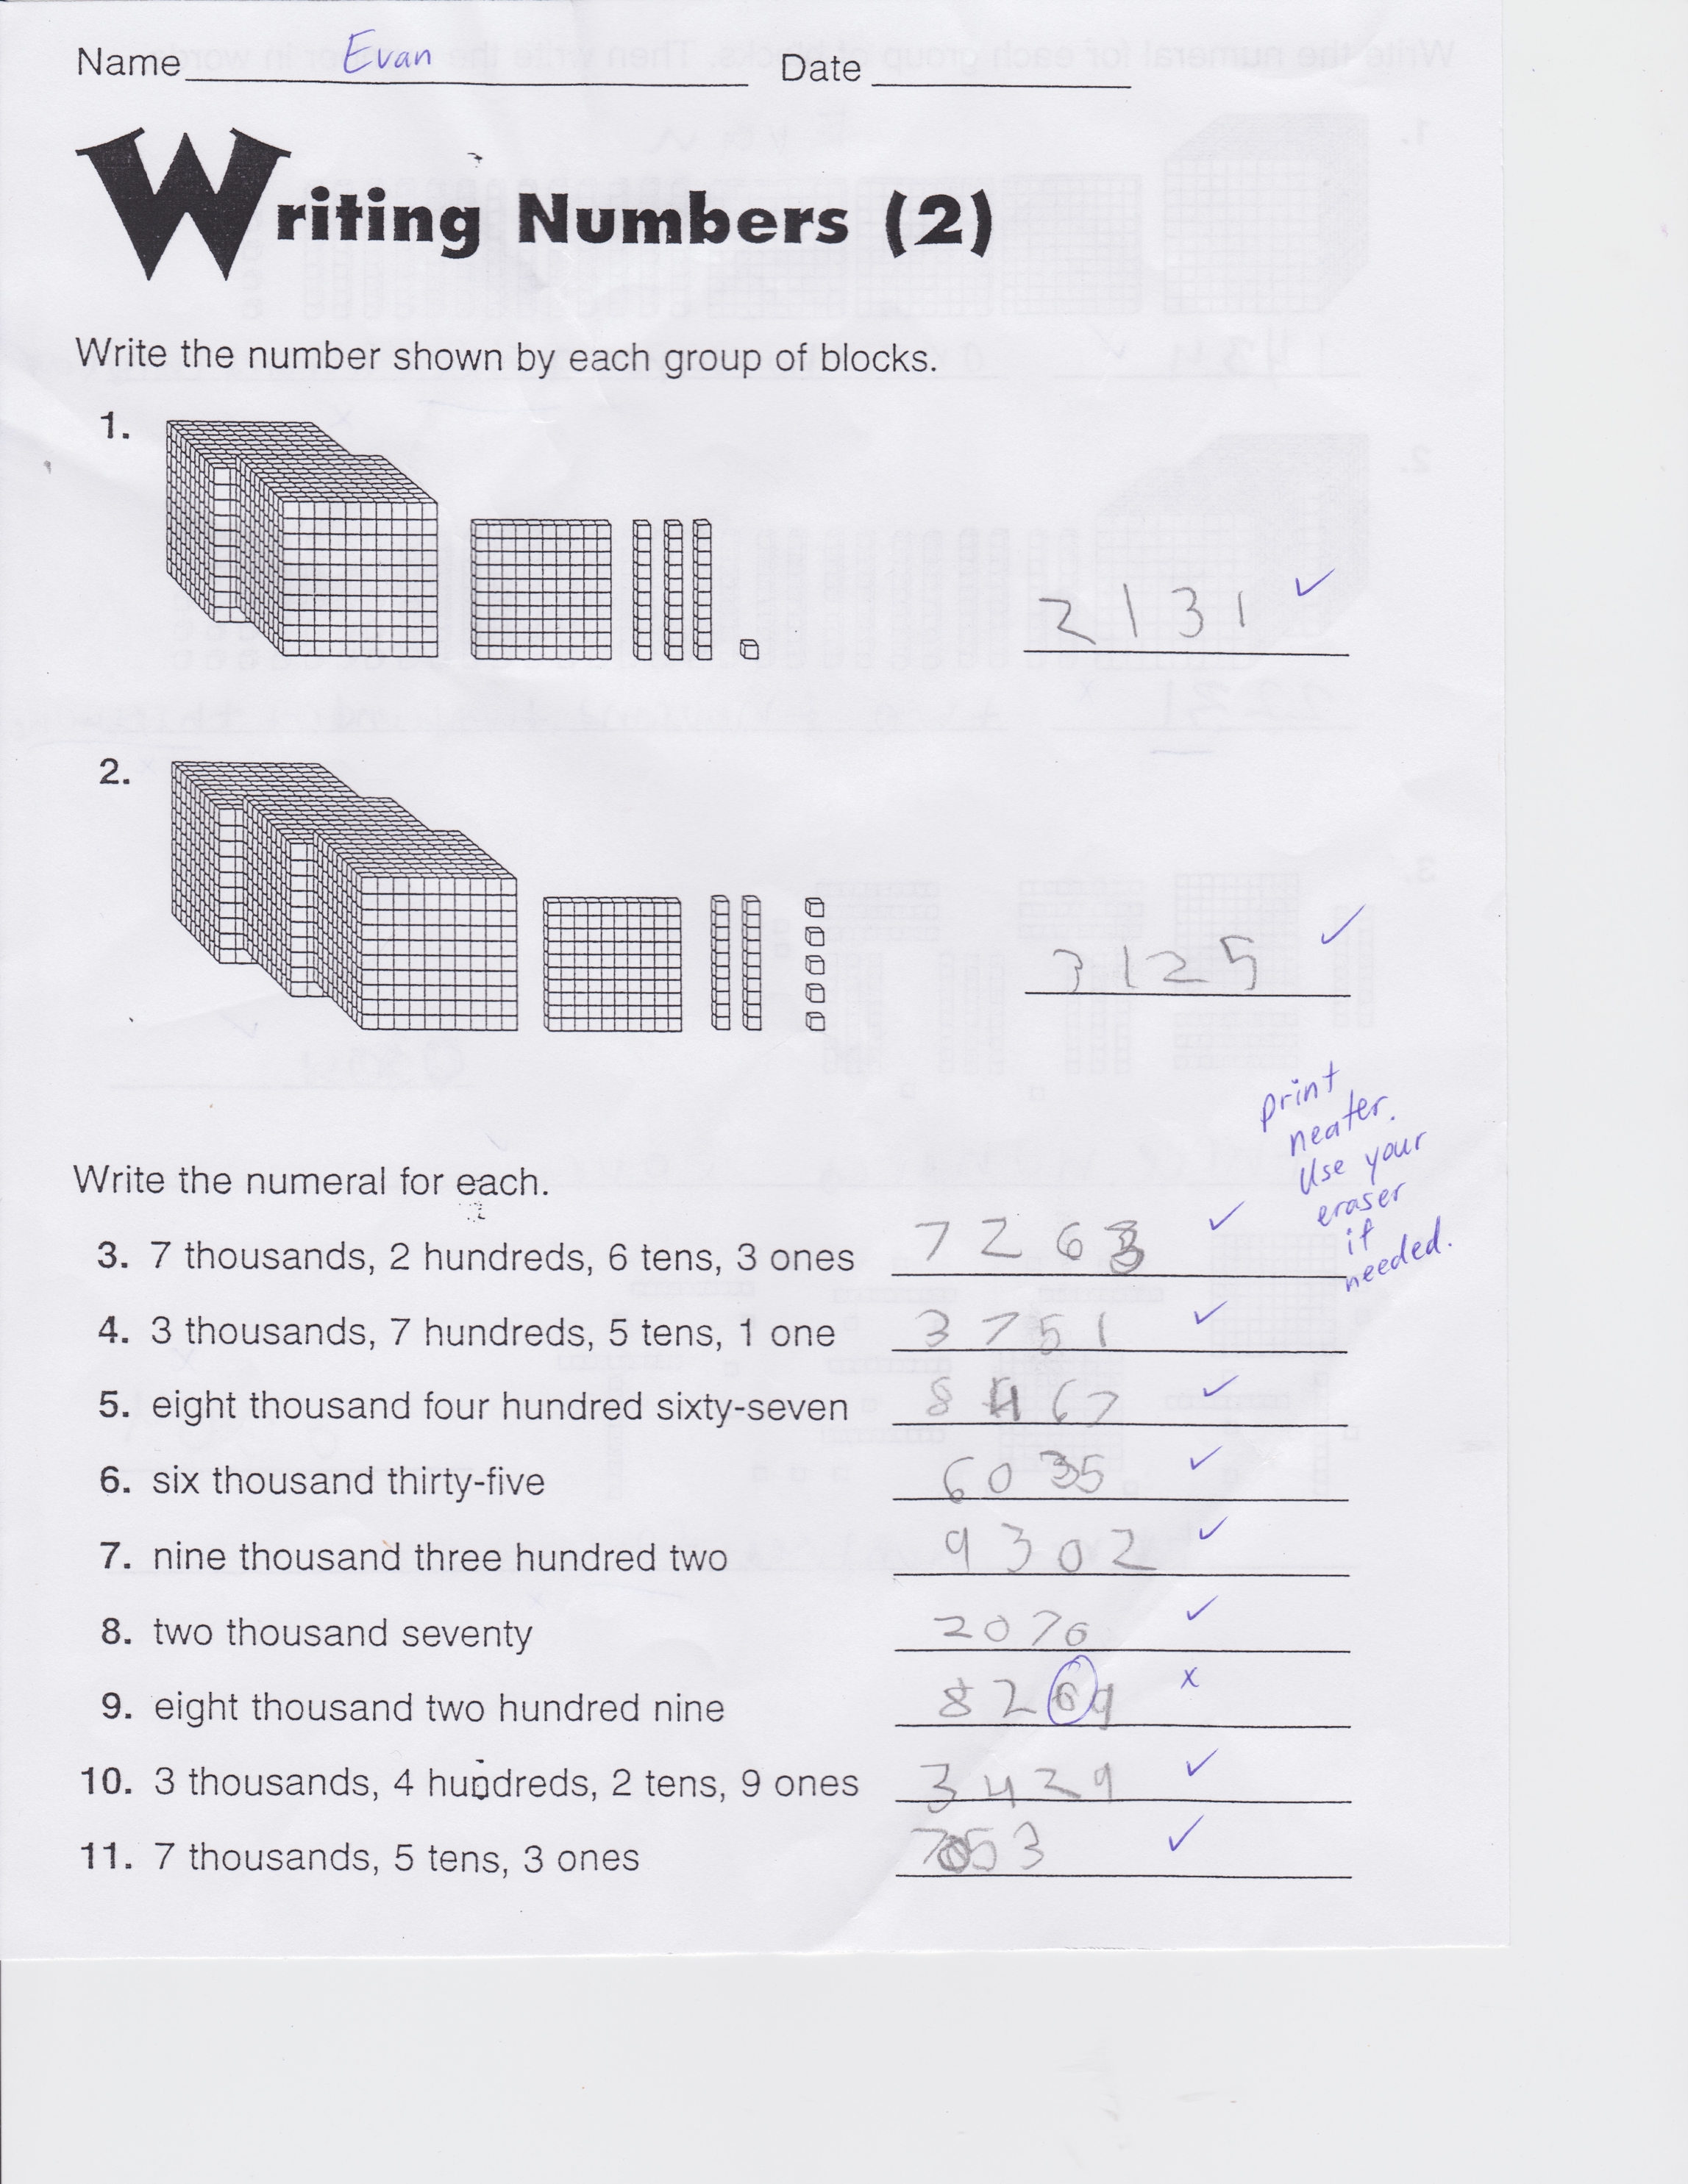 Name Evan Date
Writing Numbers (2)
Write the number shown by each group of blocks.
1.
2131 ✓
2.
3125 ✓
print
neater.
Use your
eraser
if
needed.
Write the numeral for each.
3. 7 thousands, 2 hundreds, 6 tens, 3 ones 7263 ✓
4. 3 thousands, 7 hundreds, 5 tens, 1 one 3751 ✓
5. eight thousand four hundred sixty-seven 8467 ✓
6. six thousand thirty-five 6035 ✓
7. nine thousand three hundred two 9302 ✓
8. two thousand seventy 2070 ✓
9. eight thousand two hundred nine 8269 x
10. 3 thousands, 4 hundreds, 2 tens, 9 ones 3429 ✓
11. 7 thousands, 5 tens, 3 ones 7053 ✓